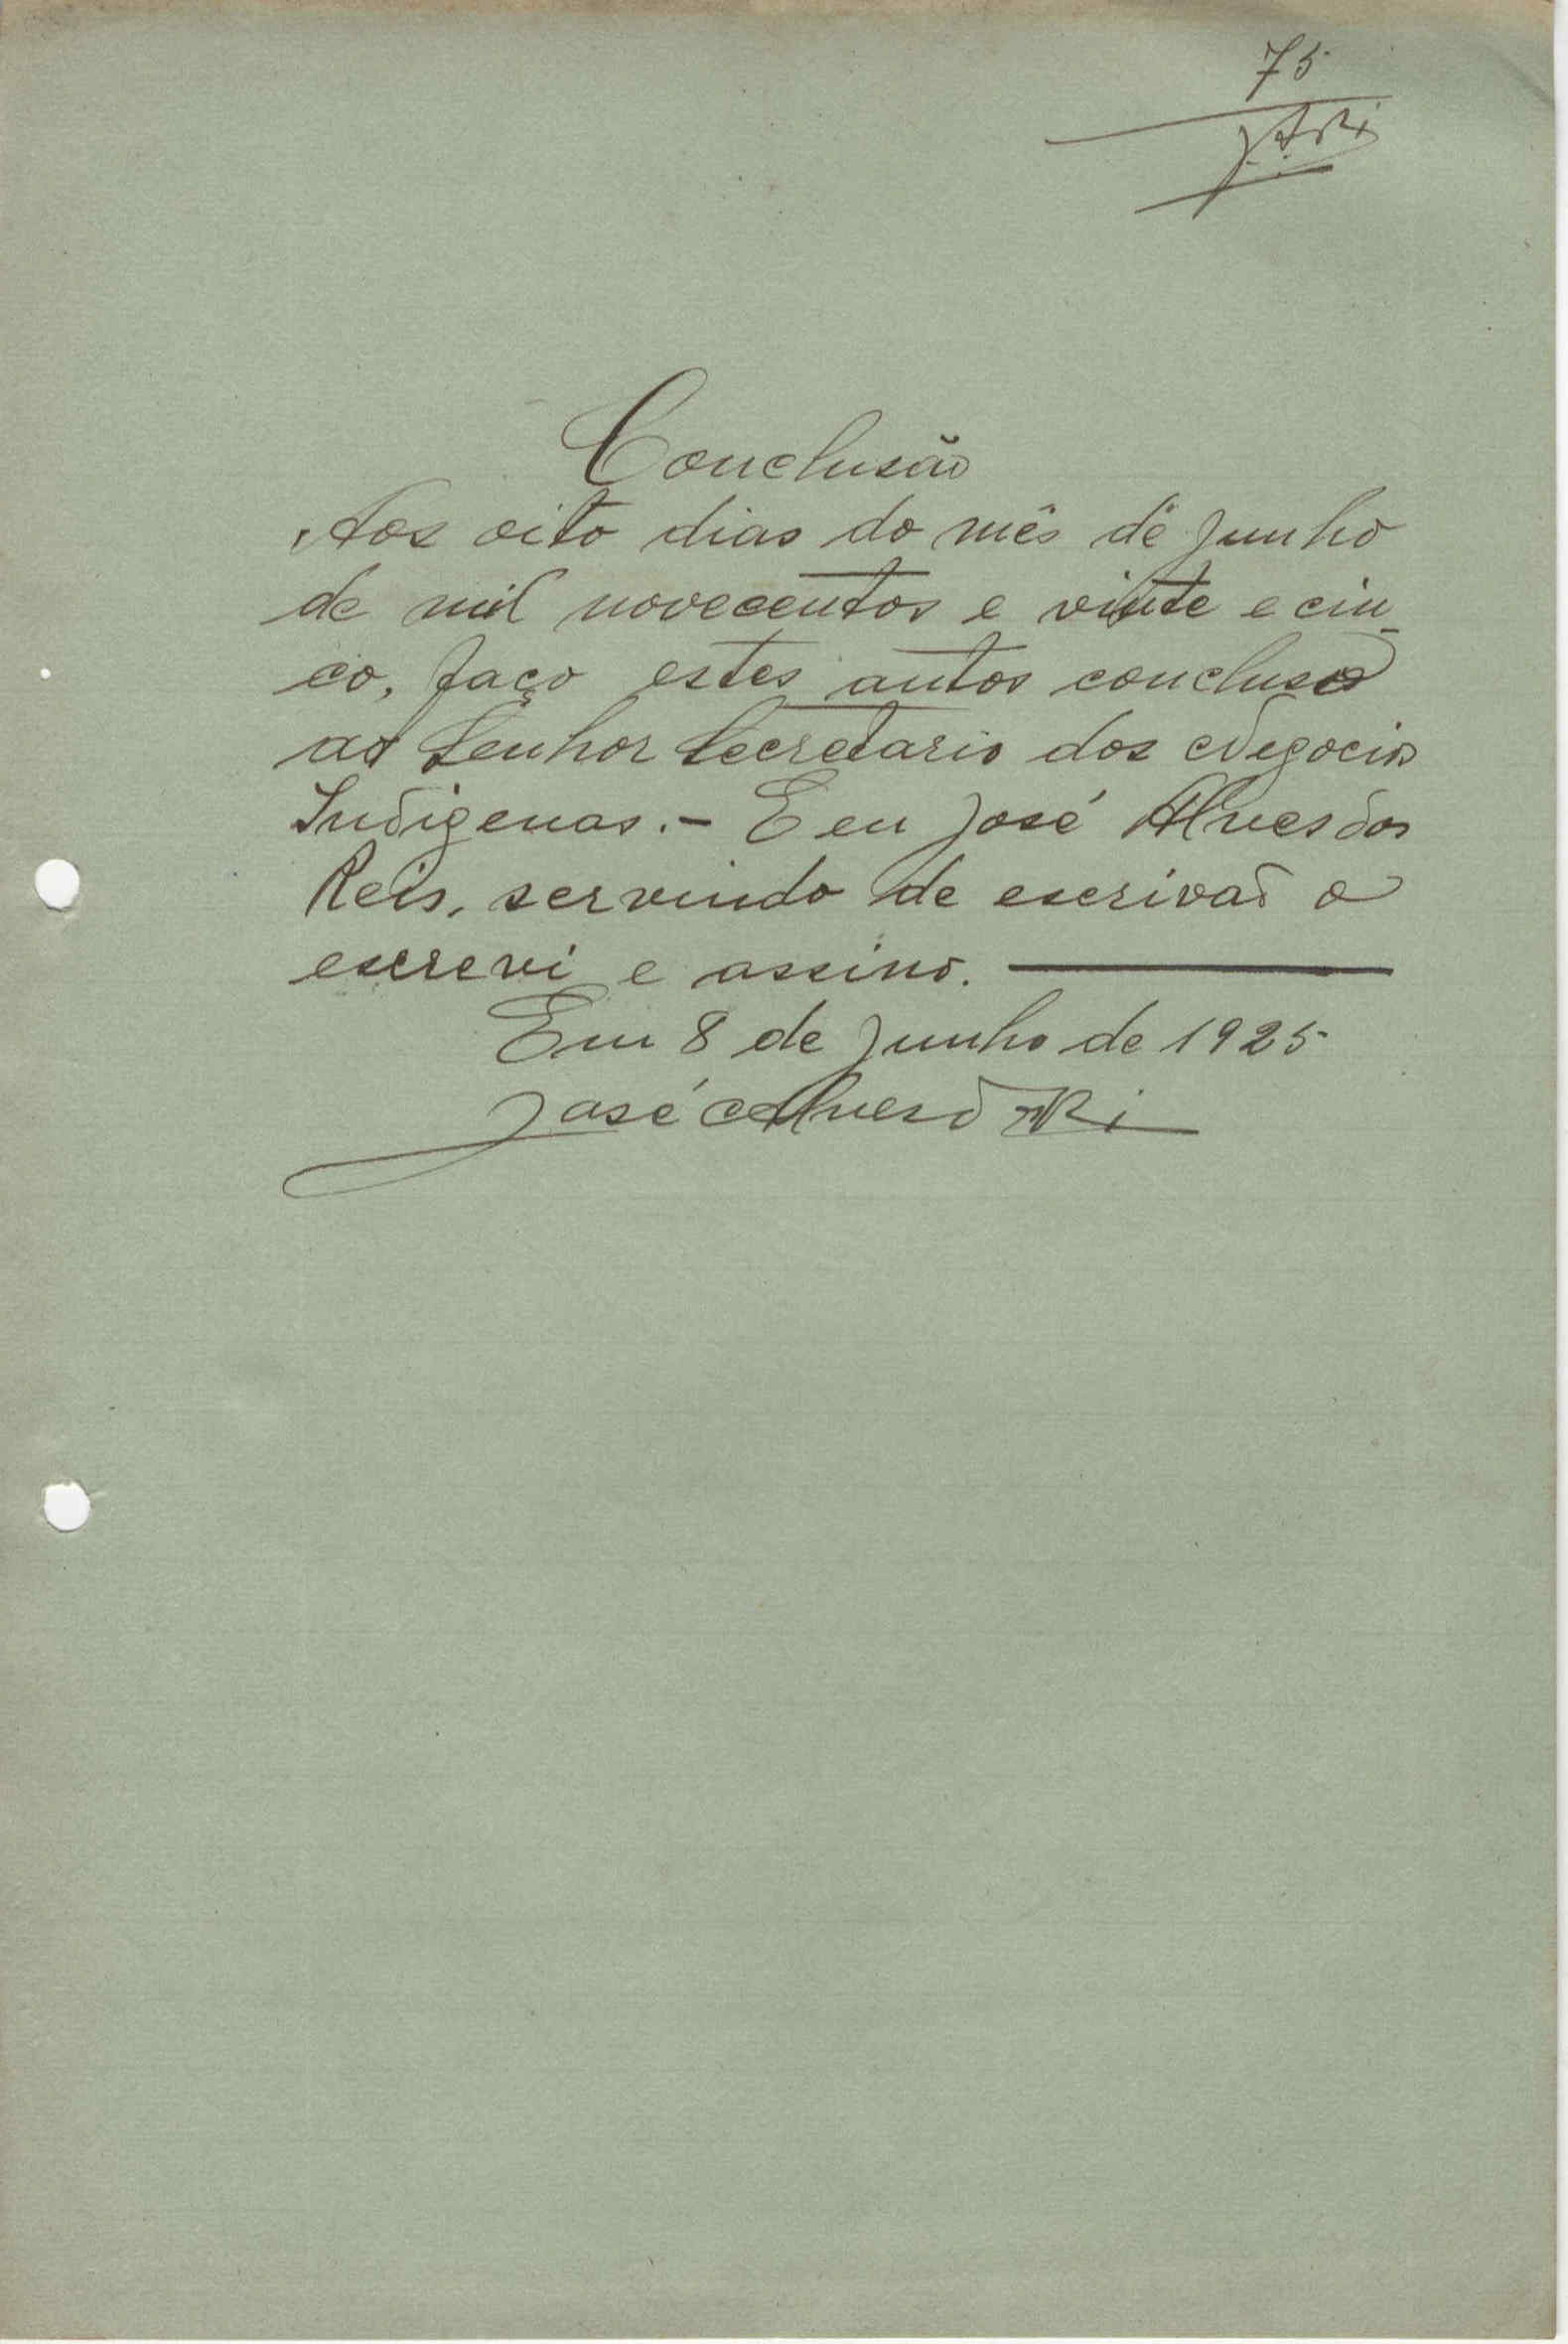 75
J.A.Reis
Conclusão
Aos oito dias do mês de Junho
de mil novecentos e vinte e cin-
co, faço estes autos conclusos
ao Senhor Secretario dos Negocios
Indigenas.- E eu José Alves dos
Reis, servindo de escrivão o
escrevi e assino.
Em 8 de Junho de 1925
José Alves d Reis